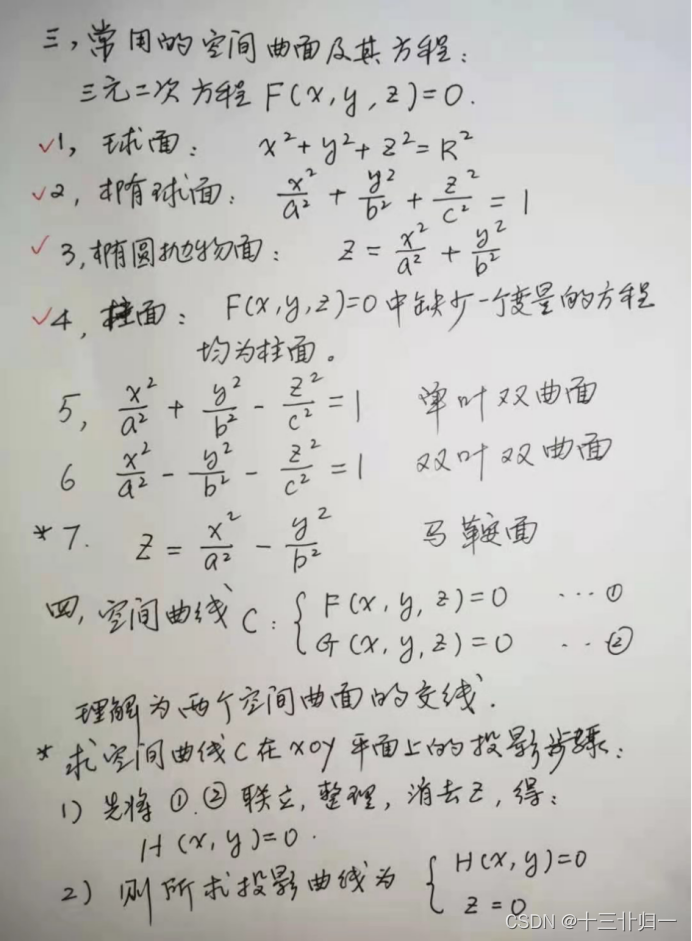 三，常用的空间曲面及其方程：
三元二次方程 F(x,y,z)=0.
✓1，球面： x²+y²+z²=R²
✓2，椭球面： x²/a² + y²/b² + z²/c² = 1
✓3，椭圆抛物面： z = x²/a² + y²/b²
✓4，柱面： F(x,y,z)=0中缺少一个变量的方程
均为柱面。
5, x²/a² + y²/b² - z²/c² = 1 单叶双曲面
6 x²/a² - y²/b² - z²/c² = 1 双叶双曲面
*7. z = x²/a² - y²/b² 马鞍面
四，空间曲线 C： { F(x,y,z)=0 …①
G(x,y,z)=0 …②
理解为两个空间曲面的交线.
* 求空间曲线C在xoy平面上的投影步骤：
1) 先将 ①.② 联立,整理,消去z,得：
H(x,y)=0.
2) 则所求投影曲线为 { H(x,y)=0
z=0
CSDN @十三卝归一